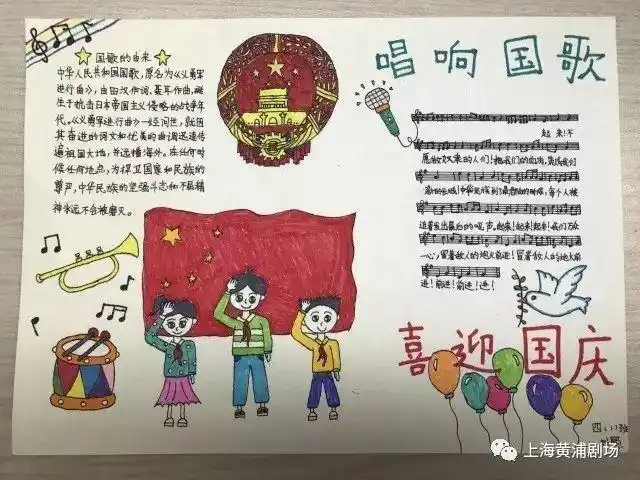 国歌的由来
中华人民共和国国歌，原名为《义勇军
进行曲》，由田汉作词，聂耳作曲，诞
生于抗击日本帝国主义侵略的战争年
代。《义勇军进行曲》一经问世，就因
其奋进的词文和优美的曲调迅速传
遍祖国大地，并远播海外。在任何时
候任何地点，为捍卫国家和民族的
尊严，中华民族的坚强斗志和不屈精
神永远不会被磨灭。
唱响国歌
起来！不
愿做奴隶的人们！把我们的血肉，筑成我们
新的长城！中华民族到了最危险的时候，每个人被
迫着发出最后的吼声。起来！起来！起来！我们万众
一心，冒着敌人的炮火前进！冒着敌人的炮火前
进！前进！前进！进！
喜迎国庆
四（1）班
上海黄浦剧场